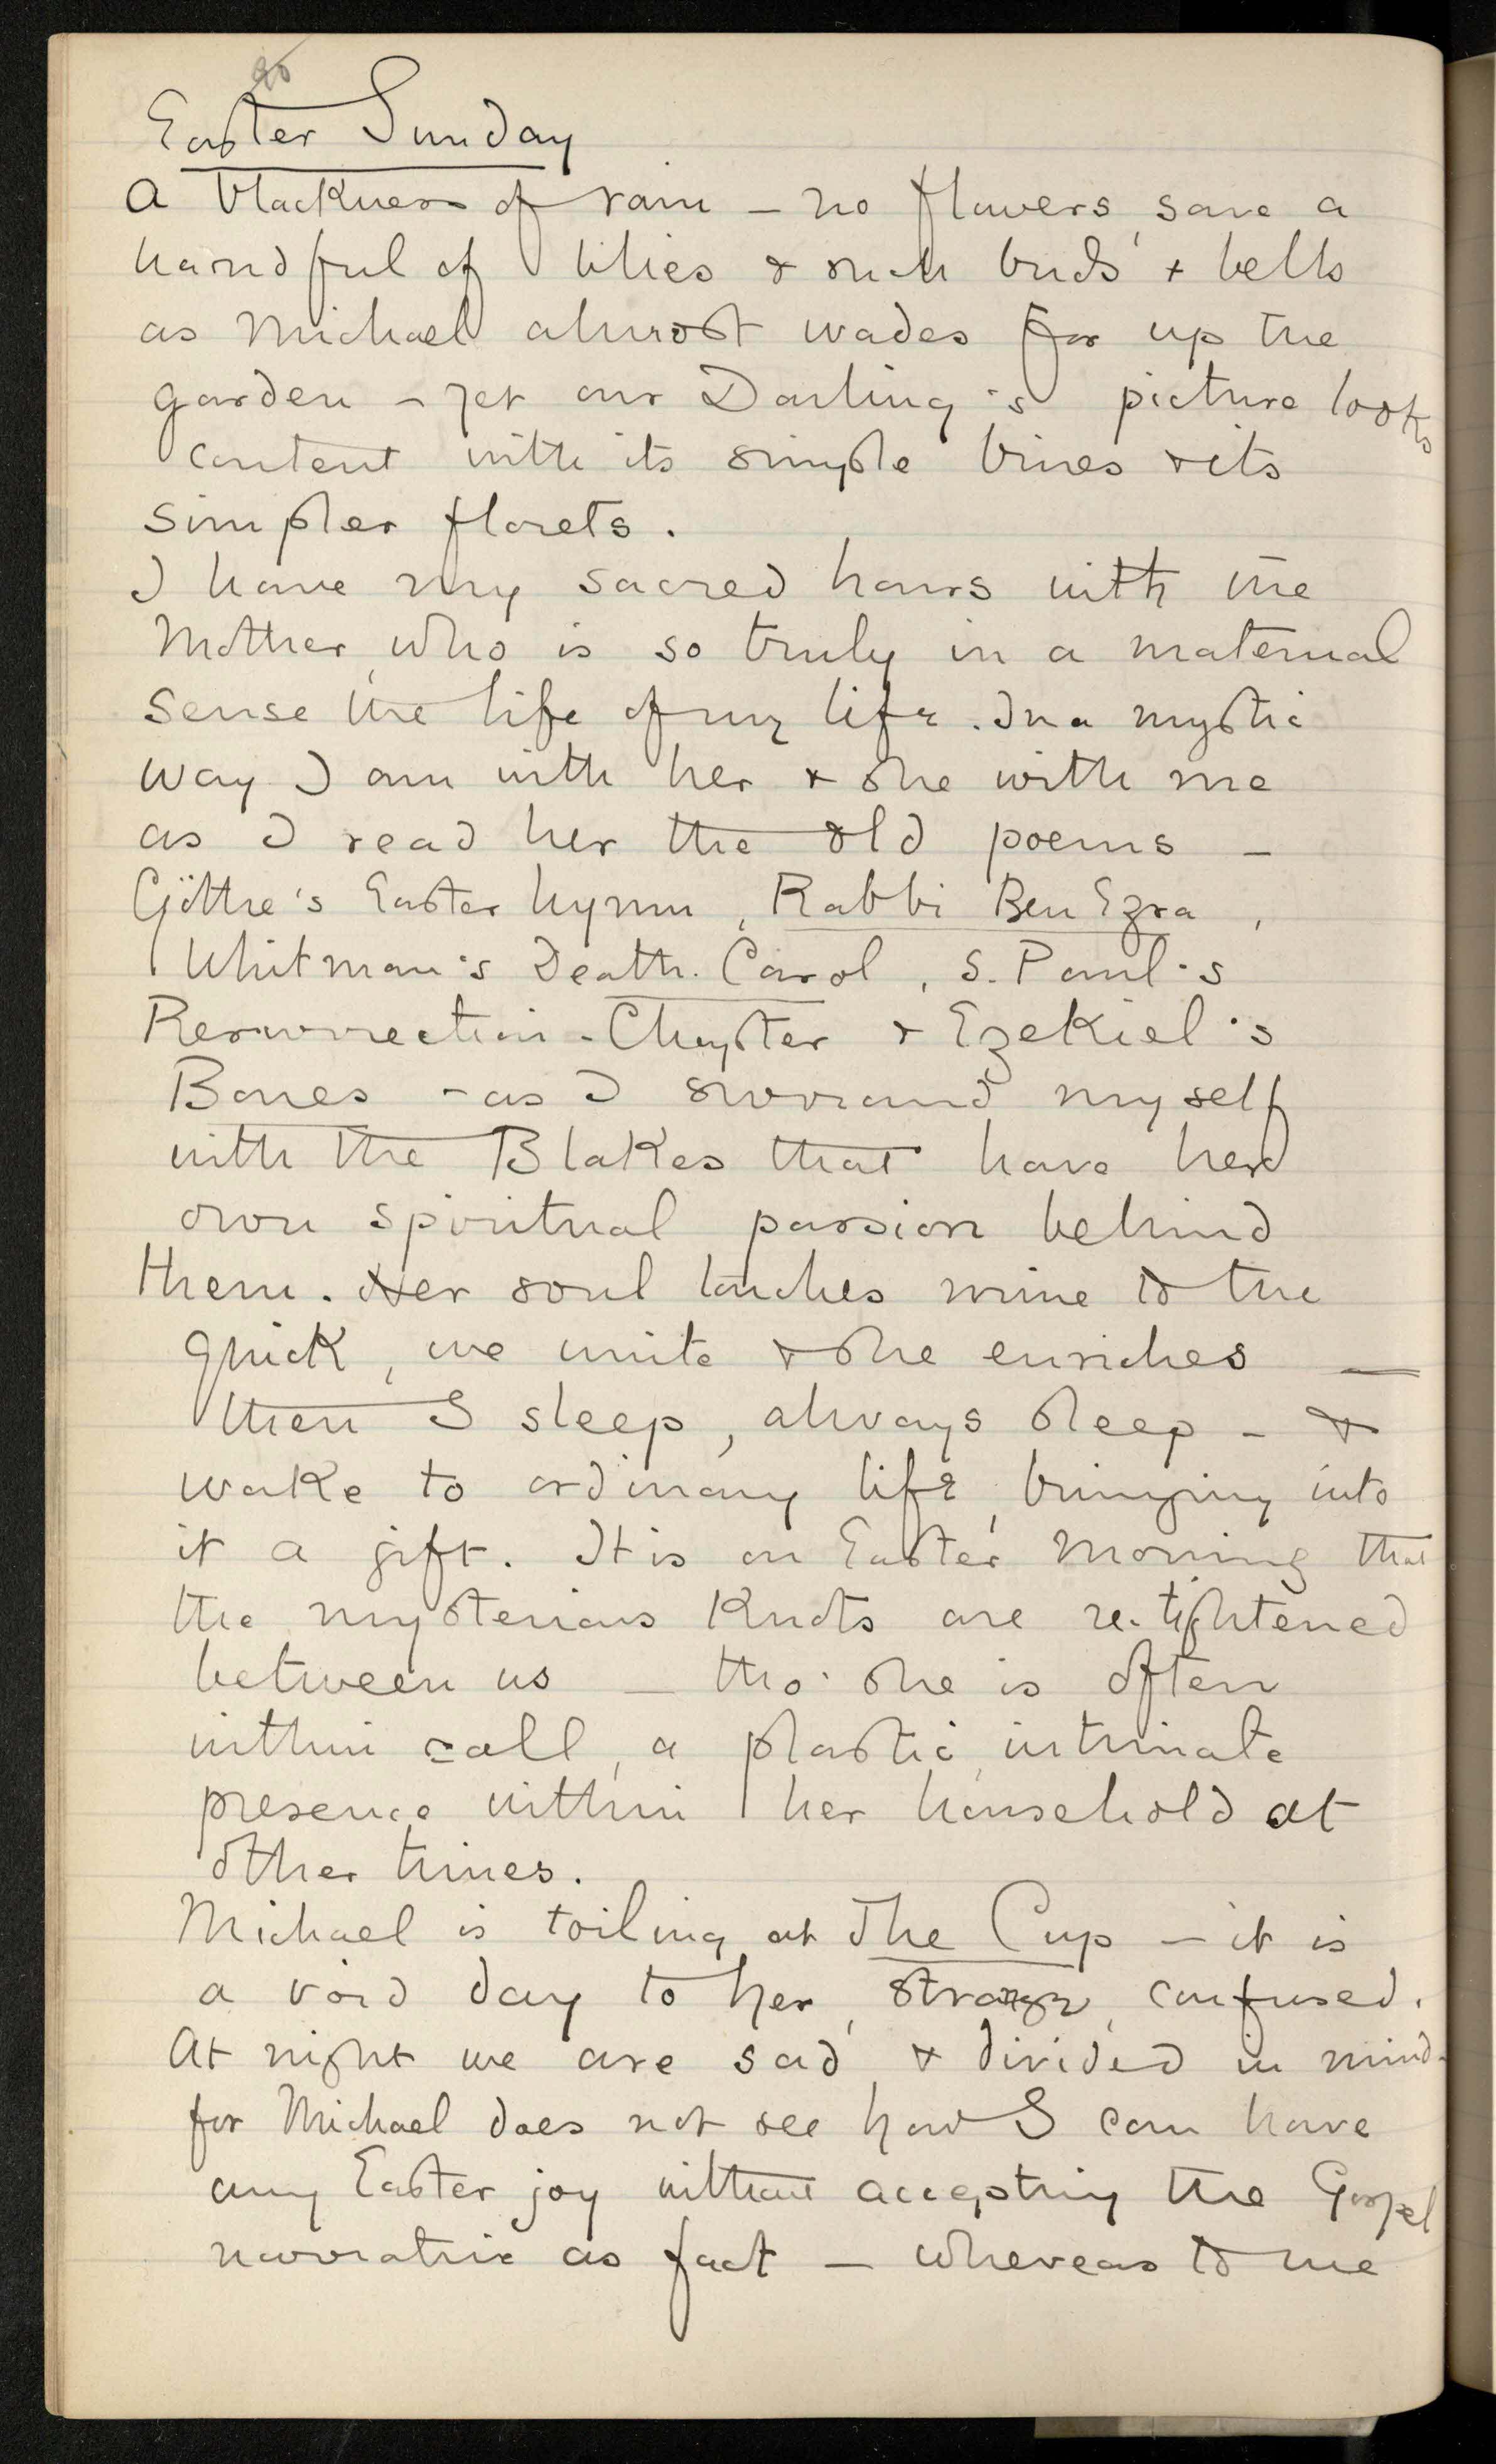 90
Easter Sunday
A blackness of rain – no flowers, save a
handful of lilies & such buds & bells
as Michael almost wades for up the
garden – yet our Darling's picture looks
content with its simple bines & its
simpler florets.
I have my sacred hours with the
Mother, who is so truly in a maternal
sense the life of my life. In a mystic
way I am with her & she with me
as I read her the old poems –
Göthe's Easter hymn, Rabbi Ben Ezra,
Whitman's Death-Carol, S. Paul's
Resurrection-Chapter & Ezekiel's
Bones – as I surround myself
with the Blakes that have her
own spiritual passion behind
them. Her soul touches mine to the
quick, we unite & she enriches —
then I sleep, always sleep – &
wake to ordinary life, bringing into
it a gift. It is on Easter Morning that
the mysterious Knots are re-tightened
between us – tho' she is often
within call, a plastic, intimate
presence within her household at
other times.
Michael is toiling at The Cup – it is
a void day to her, strange, confused.
At night we are sad & divided in mind-
for Michael does not see how I can have
any Easter joy without accepting the Gospel
narrative as fact – whereas to me